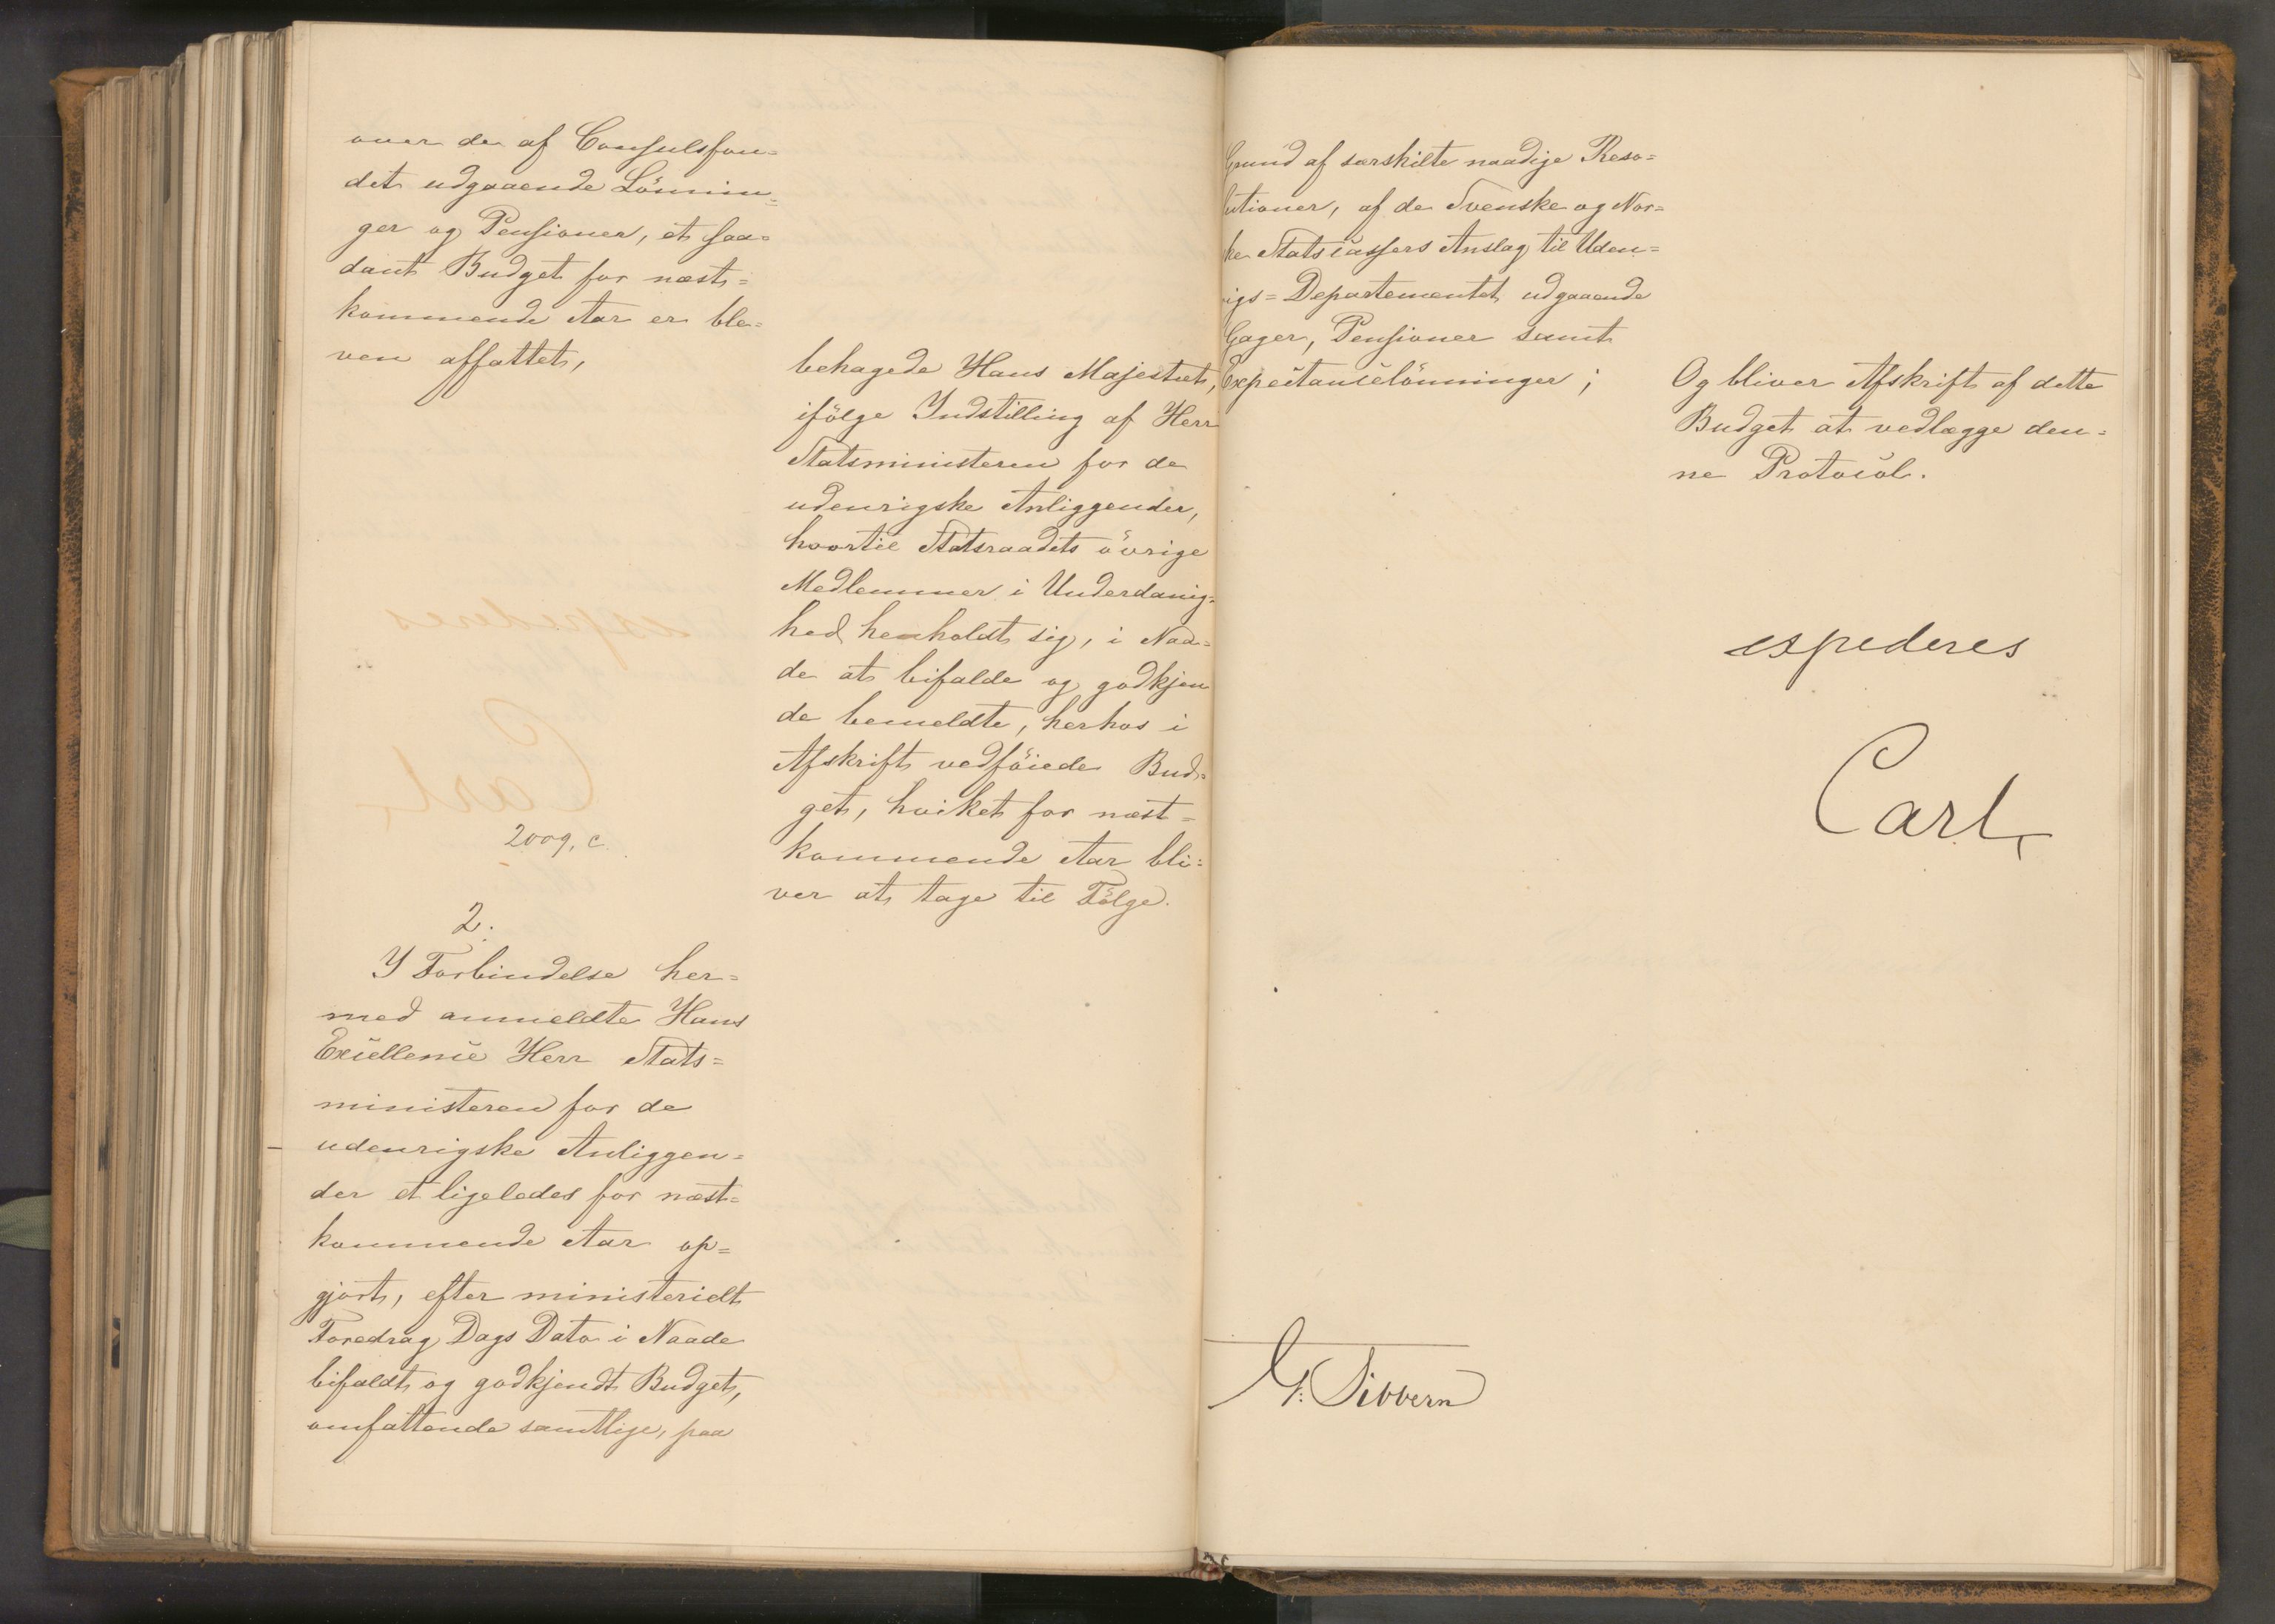 over de af Consulsfon=
det udgaaende Lönnin=
ger og Pensioner, et saa=
dant Budget for næst=
kommende Aar er ble=
ven affattet,
behagede Hans Majestæt,
ifölge Indstilling af Herr
Statsministeren for de
udenrigske Anliggender,
hvortil Statsraadets övrige
Medlemmer i Underdanig=
hed henholdt sig, i Naa=
de at bifalde og godkjen
de bemeldte, herhos i
Afskrift vedföiede Bud=
get, hvilket for næst=
kommende Aar bli=
ver at tage til Fölge.
2009, c.
2.
I Forbindelse her=
med anmeldte Hans
Excellence Herr Stats=
ministeren for de
udenrigske Anliggen=
der et ligeledes for næst=
kommende Aar op=
gjort, efter ministerielt
Foredrag Dags Dato i Naade
bifaldt og godkjendt Budget,
omfattende samtlige, paa
Grund af særskilte naadige Reso=
lutioner, af de Svenske og Nor=
ke Statscassers Anslag til Uden=
rigs=Departementet udgaaende
Gager, Pensioner samt
Expectancelönninger;
Og bliver Afskrift af dette
Budget at vedlægge den=
ne Protocol.
expederes
Carl
G. Sibbern